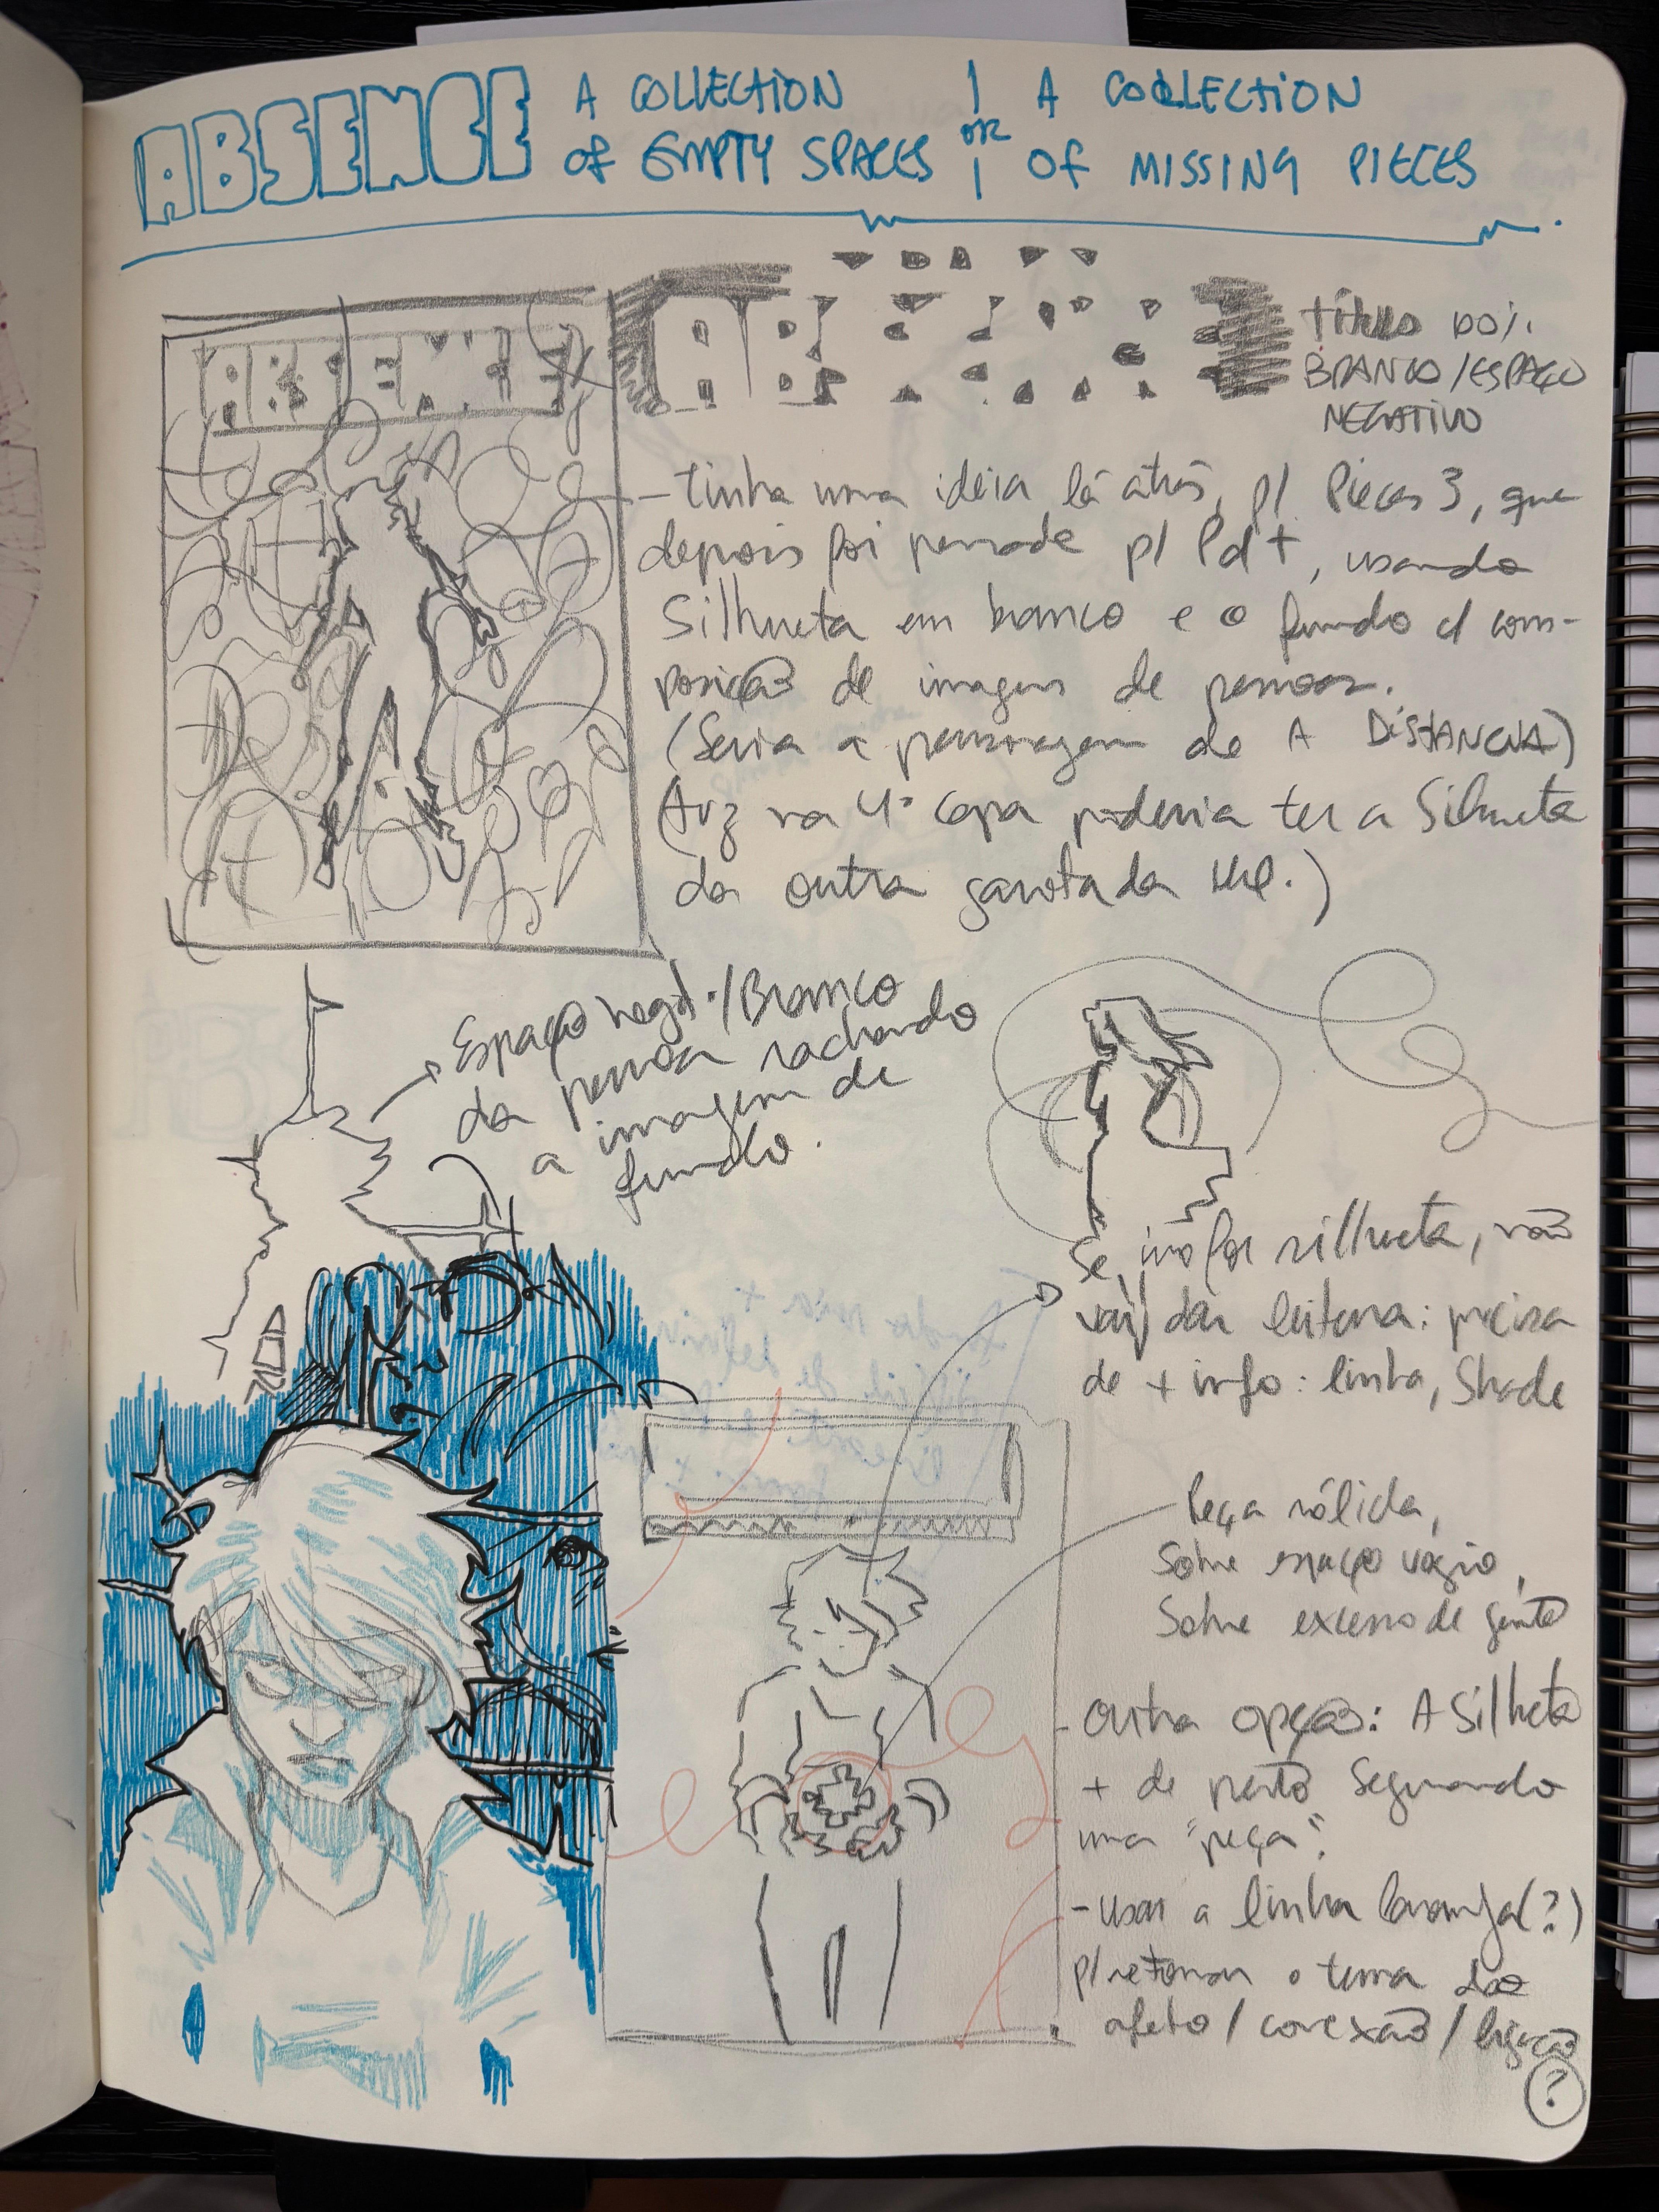 ABSENCE
A COLLECTION
OF EMPTY SPACES
OR
A COLLECTION
OF MISSING PIECES
ABSENCE
AB
título
BRANCO/ESPAÇO
NEGATIVO
- tinha uma ideia lá atrás, p/ Pieces 3, que
depois foi pensada p/ Pd+, usando
Silhueta em branco e o fundo c/ com-
posição de imagens de pessoas.
(Seria a personagem de A DISTÂNCIA)
na 4ª capa poderia ter a Silhueta
da outra garota da
Espaço negat./Branco
da pessoa rachando
a imagem de
fundo.
Se não for silhueta, não
vai dar leitura: precisa
de + info: linha, Shade
Peça sólida,
Sobre espaço vazio,
Sobre excesso de gente
- Outra opção: A Silhueta
+ de perto Segurando
uma "peça".
- usar a linha laranja(?)
p/ retomar o tema do
afeto/conexão/ligação
?